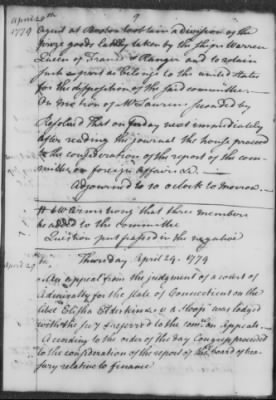 April 20th 9
1779 Agent at Boston to obtain a division of the
prize goods lately taken by the ships Warren
Queen of France & Ranger and to retain
such part as belongs to the united States
for the disposition of the said committee.
On motion of Mr Laurens seconded by
Resolved That on for day next immediately
after reading the journal the house proceed
to the consideration of the report of the com-
mittee on foreign affairs
Adjourned to 10 o Clock to morrow.
that three members
be added to the Committee
Question put passed in the negative
Thursday April 24. 1779
An appeal from the judgment of a court of
Admiralty for the state of Connecticut on the
libel Elisha Elderkin &c v a Sloop was lodged
with the Secy & referred to the comee on Appeals
According to the order of the day Congress proceeded
to the consideration of the report of the board of trea-
sury relative to finance